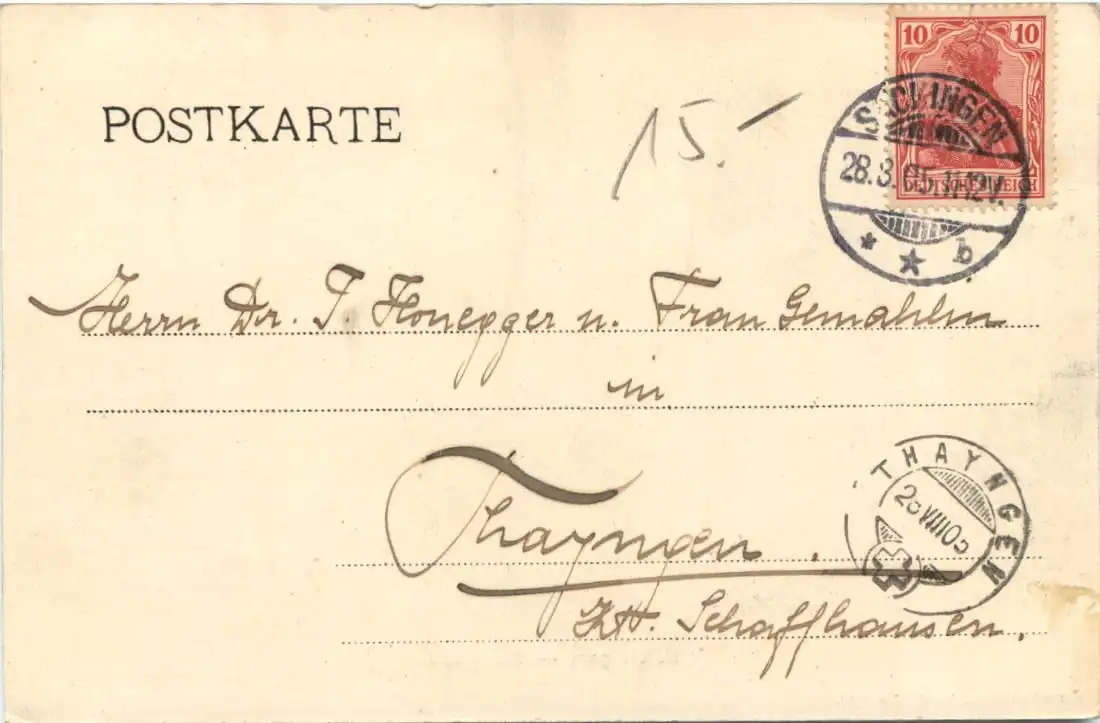 10 10
DEUTSCHES REICH
SÄCKINGEN
28.8.05.11-12V.
* * b
POSTKARTE
15.-
Herrn Dr. J. Honegger u. Frau Gemahlin
in
Thayngen.
Kt. Schaffhausen.
THAYNGEN
VIII 05